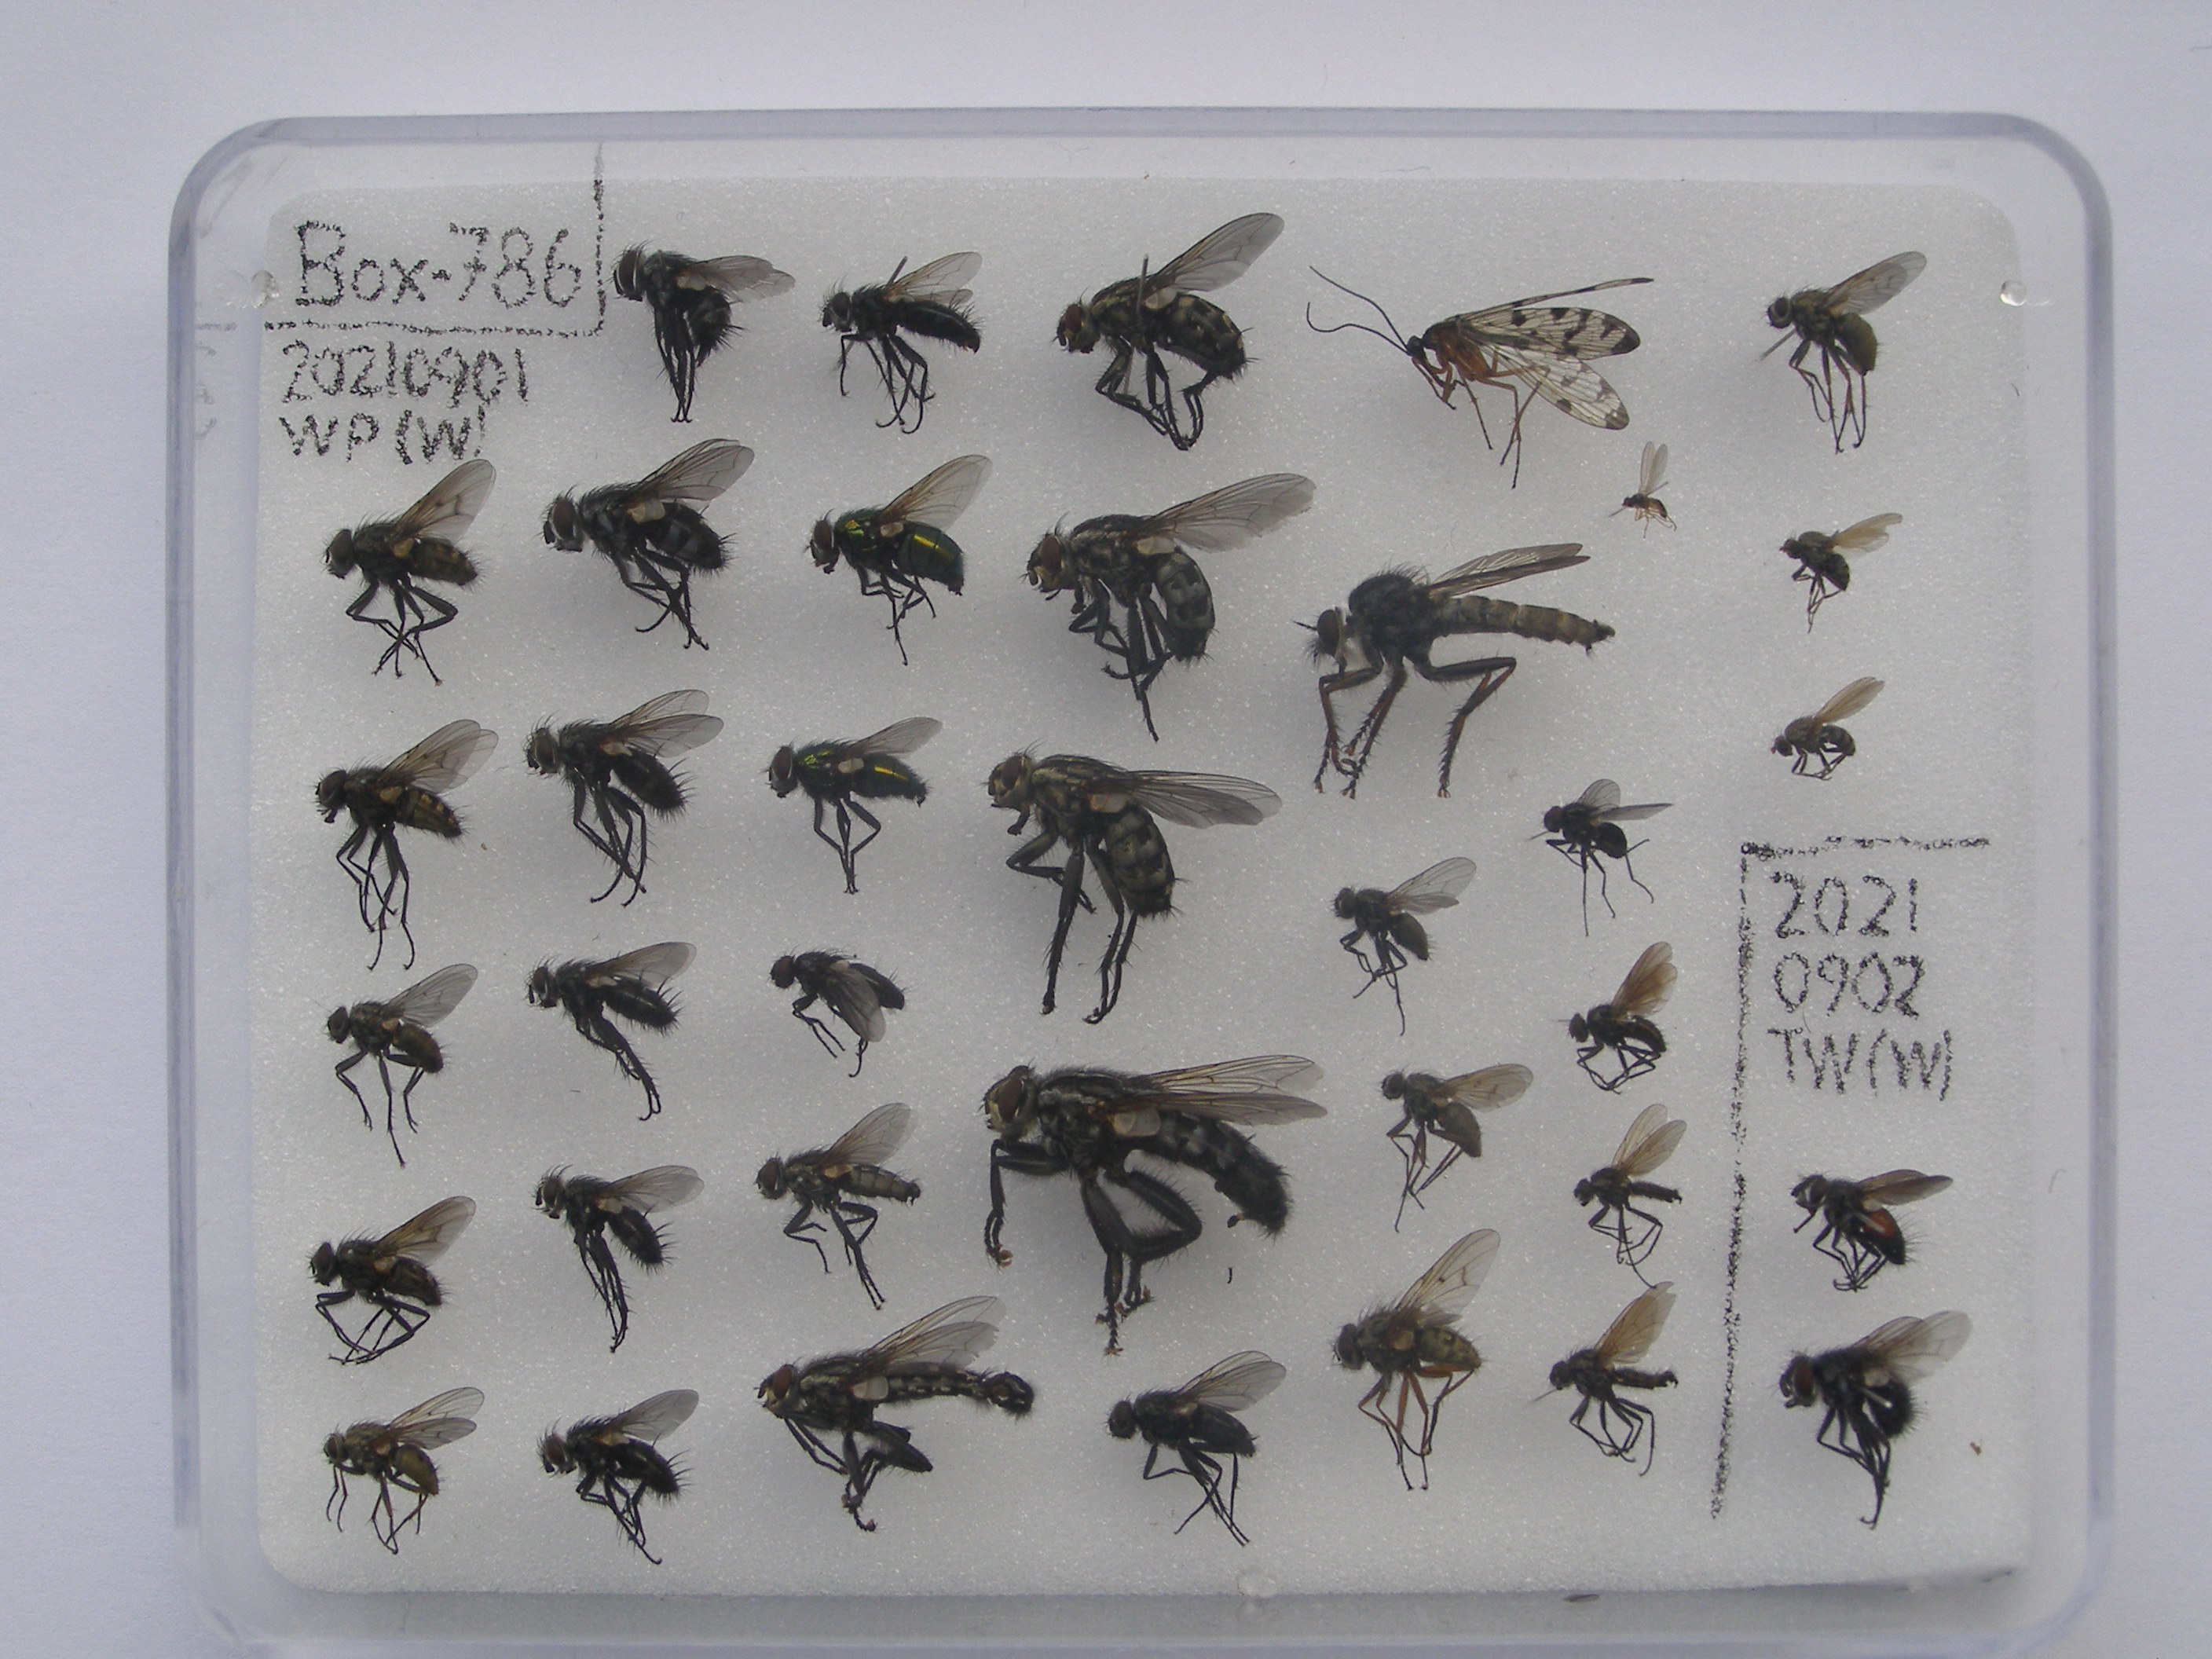 Box-786
20210901
WP(W)
2021
0902
TW(W)